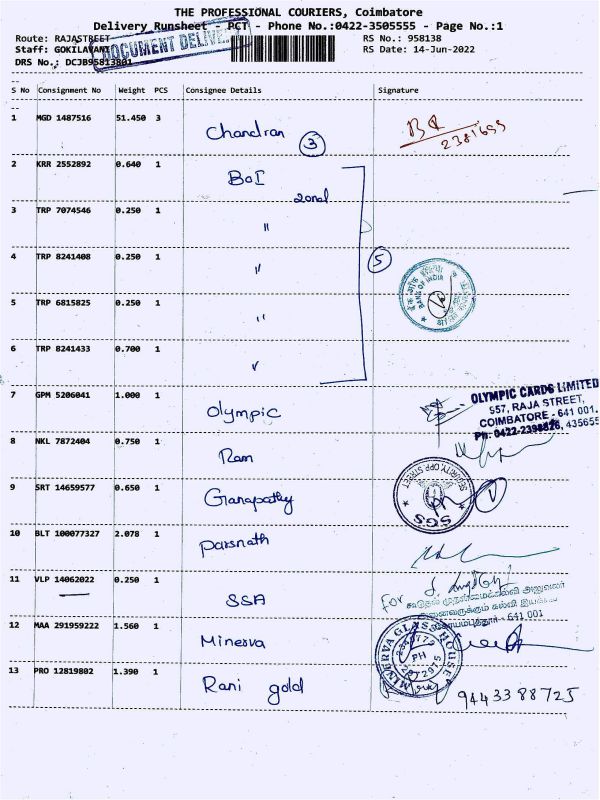 THE PROFESSIONAL COURIERS, Coimbatore
Delivery Runsheet - PCT - Phone No.:0422-3505555 - Page No.:1
Route: RAJASTREET RS No.: 958138
Staff: GOKILAVANI RS Date: 14-Jun-2022
DOCUMENT DELIVE
DRS No.: DCJB95813801
S No Consignment No Weight PCS Consignee Details Signature
1 MGD 1487516 51.450 3 Chandran 3
2381655
2 KRR 2552892 0.640 1 BoI
zonal
3 TRP 7074546 0.250 1 "
4 TRP 8241408 0.250 1 " 5
BANK OF INDIA
5 TRP 6815825 0.250 1 "
6 TRP 8241433 0.700 1 "
7 GPM 5206041 1.000 1 Olympic
OLYMPIC CARDS LIMITED
557, RAJA STREET,
COIMBATORE - 641 001.
Ph: 0422-2398826, 435655
8 NKL 7872404 0.750 1 Ram
9 SRT 14659577 0.650 1 Ganapathy
SGS
10 BLT 100077327 2.078 1 Parsnath
11 VLP 14062022 0.250 1 SSA
For
641 001
12 MAA 291959222 1.560 1 Minerva
MINERVA GLASS HOUSE
PH
13 PRO 12819802 1.390 1 Rani gold
9443388725